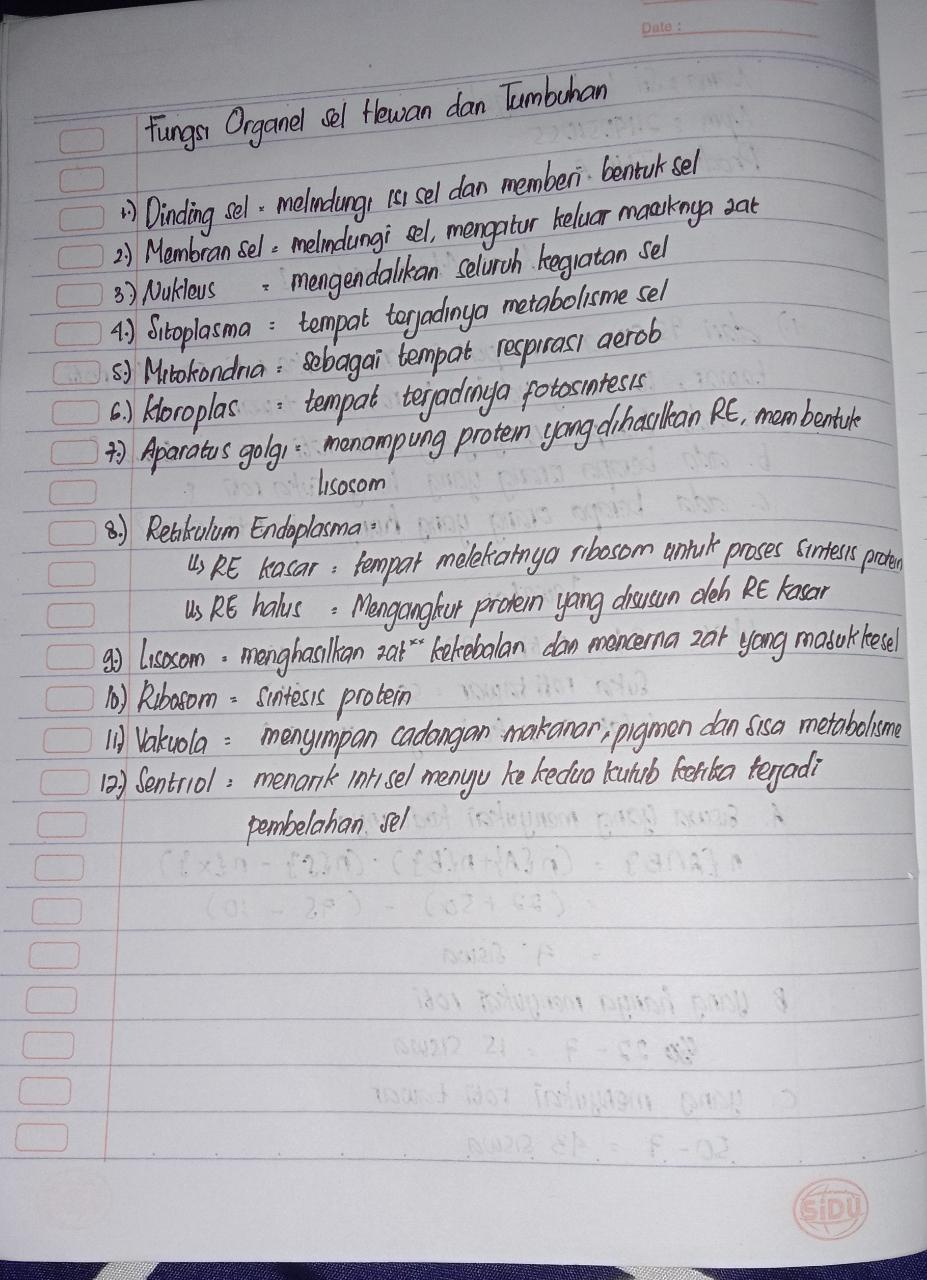 Date :
Fungsi Organel sel Hewan dan Tumbuhan
1.) Dinding sel = melindungi isi sel dan memberi bentuk sel
2.) Membran sel = melindungi sel, mengatur keluar masuknya zat
3.) Nukleus = mengendalikan seluruh kegiatan sel
4.) Sitoplasma = tempat terjadinya metabolisme sel
5.) Mitokondria = sebagai tempat respirasi aerob
6.) kloroplas = tempat terjadinya fotosintesis
7.) Aparatus golgi = menampung protein yang dihasilkan RE, membentuk
lisosom
8.) Retikulum Endoplasma =
↳ RE kasar = tempat melekatnya ribosom untuk proses sintesis protein
↳ RE halus = Mengangkut protein yang disusun oleh RE kasar
9.) Lisosom = menghasilkan zat" kekebalan dan mencerna zat yang masuk kesel
10) Ribosom = sintesis protein
11) Vakuola = menyimpan cadangan makanan, pigmen dan sisa metabolisme
12.) Sentriol = menarik inti sel menuju ke kedua kutub ketika terjadi
pembelahan sel
SiDU